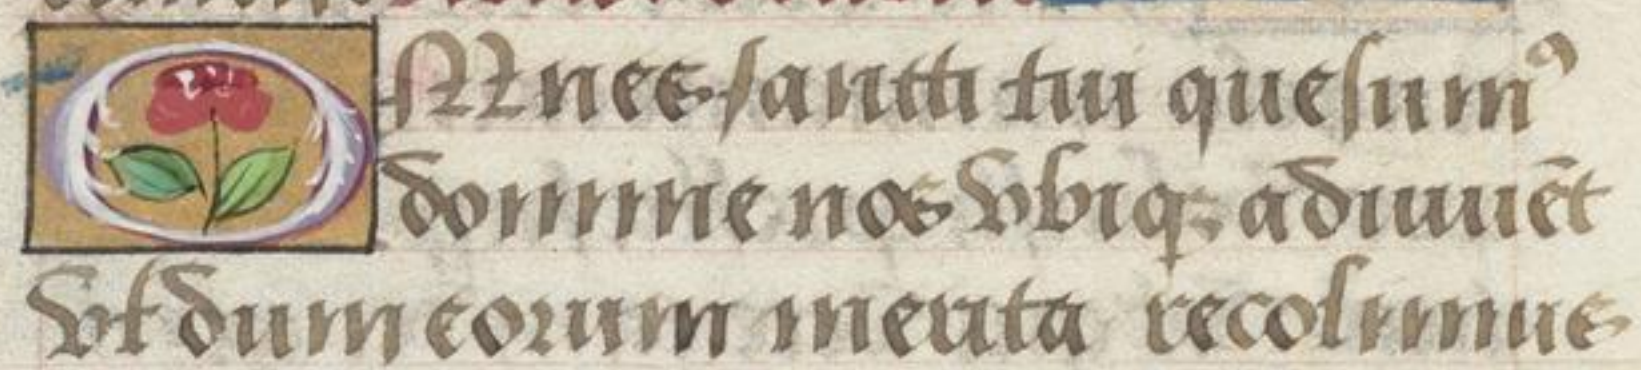 OMnes santti tui quesumꝯ
domine nos vbiqꝫ adiuuēt
vt dum eorum merita recolimus